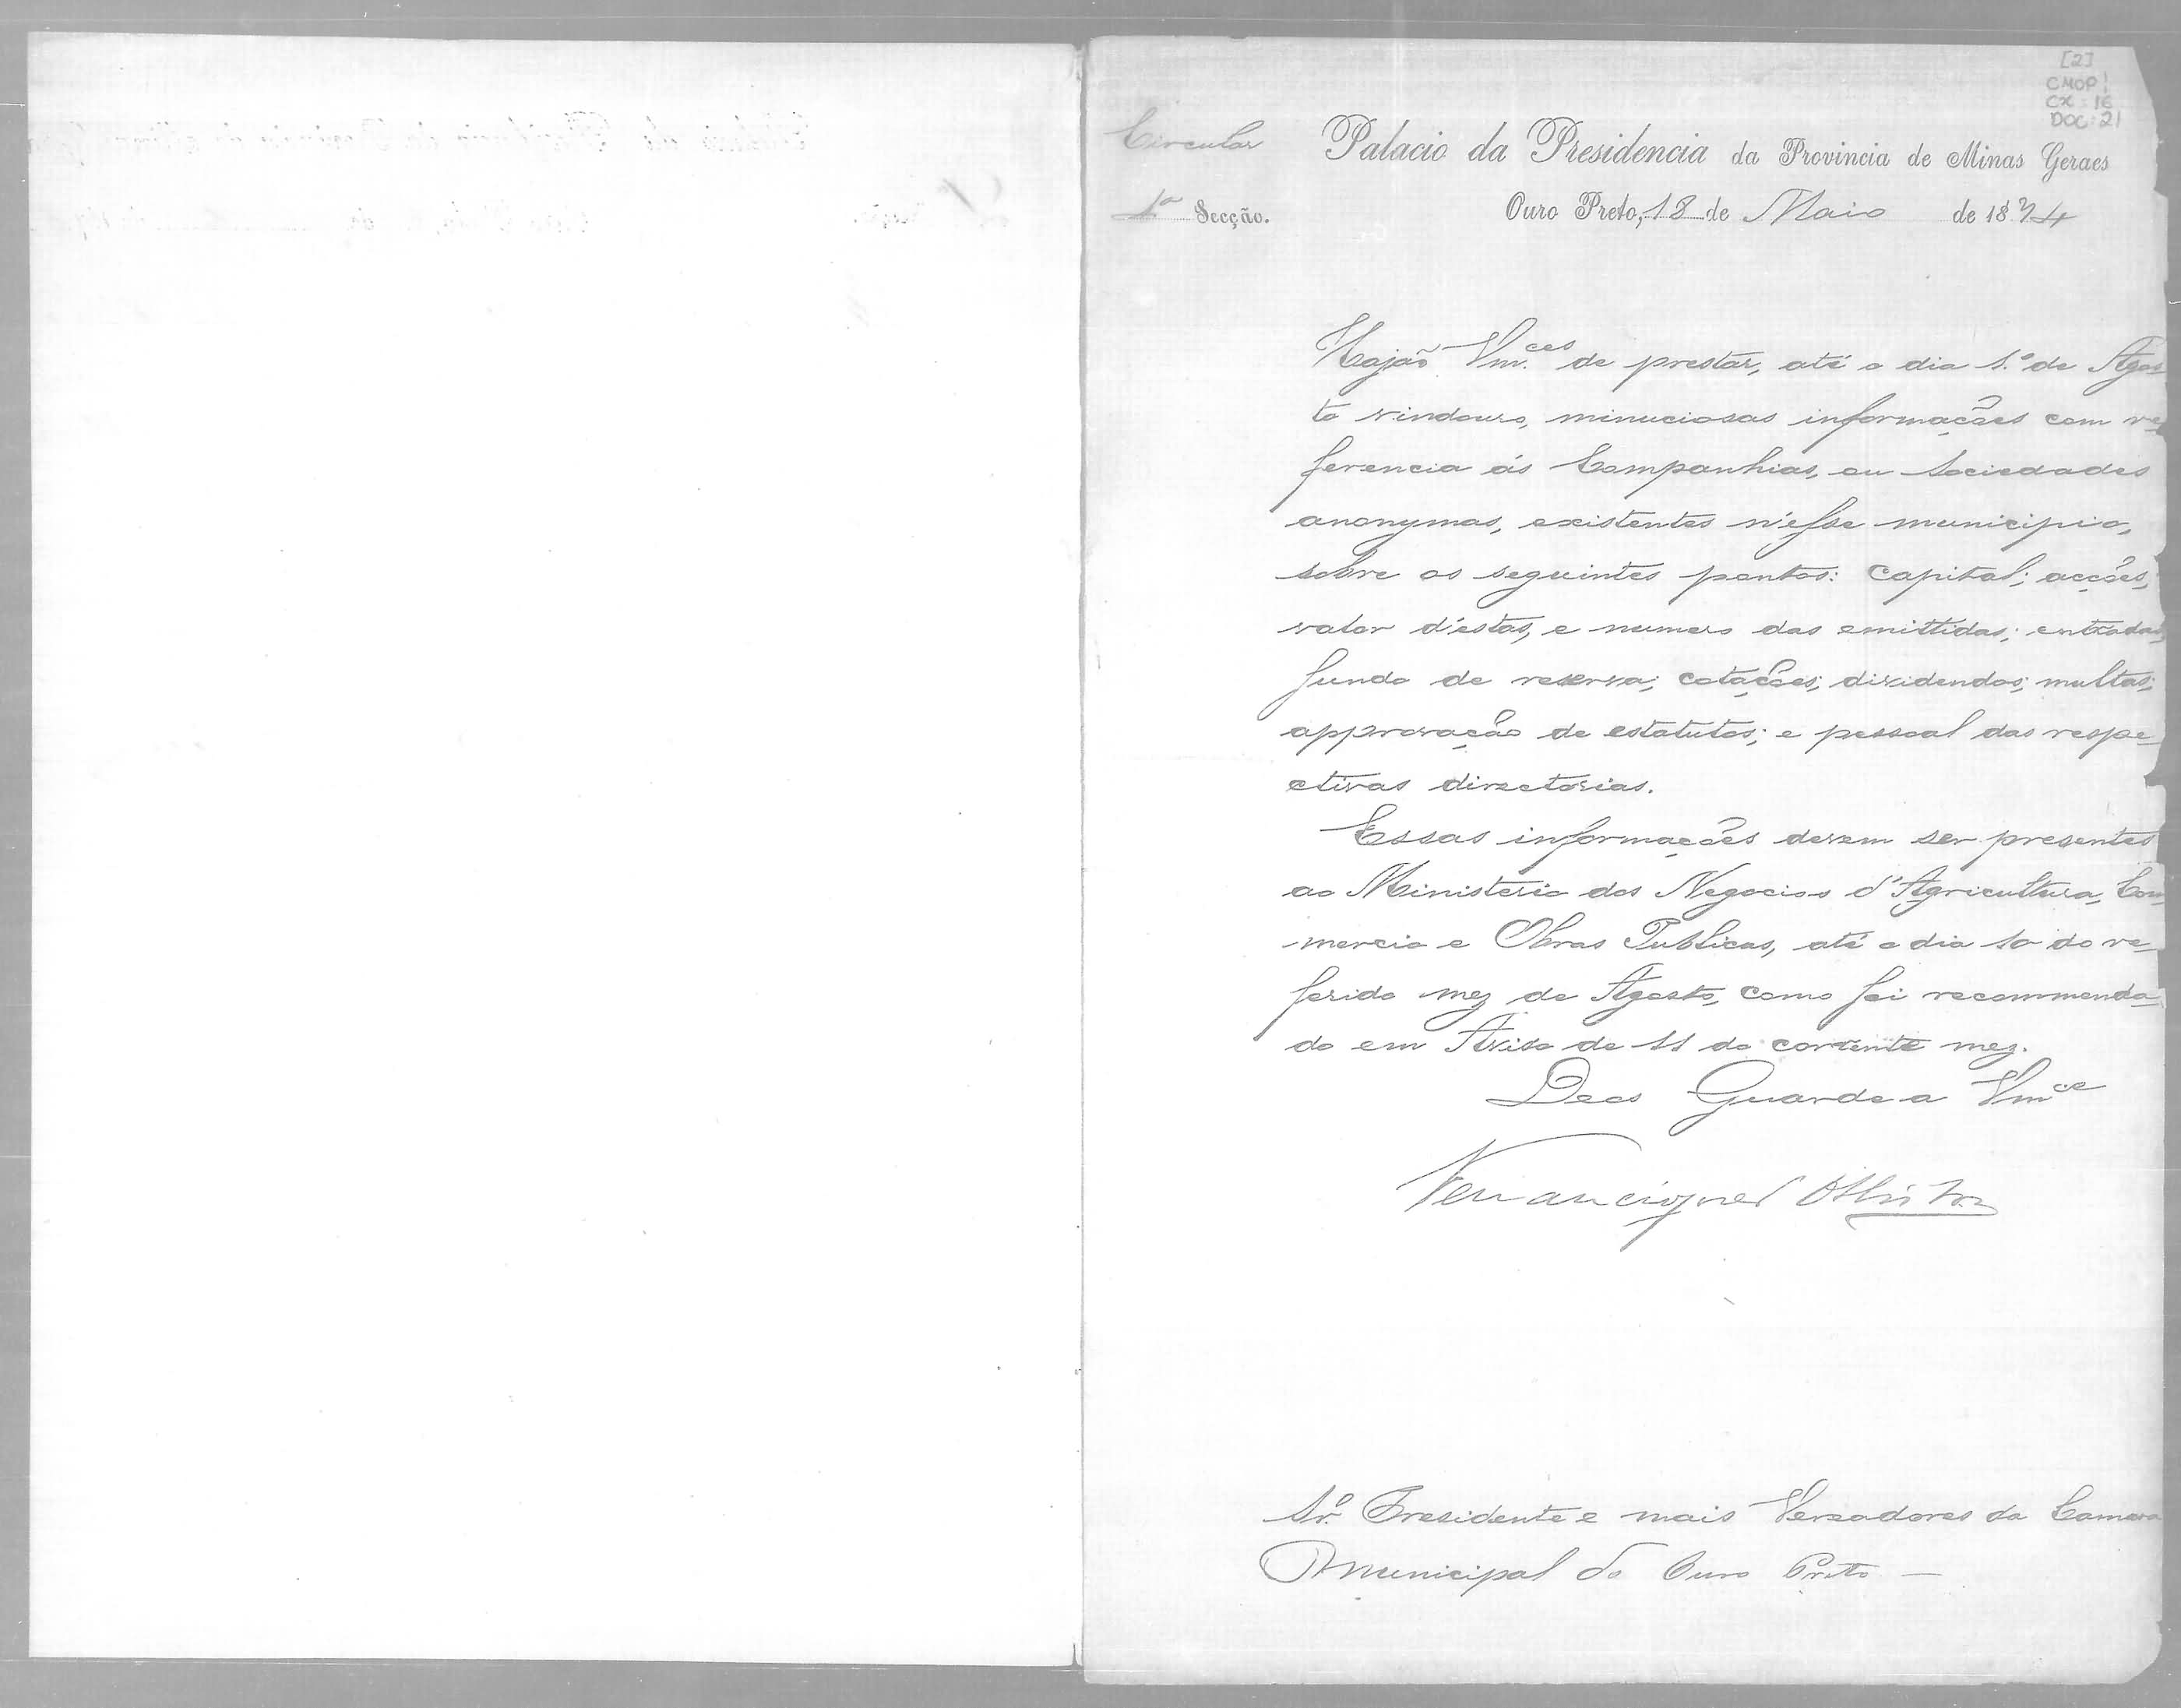 [2]
CMOP
CX: 16
DOC: 21
Circular
Palacio da Presidencia da Provincia de Minas Geraes
1ª Secção.
Ouro Preto, 18 de Maio de 1874
Hajão Vm.ces de prestar, até o dia 1.º de Agos-
to vindouro, minuciosas informações com re-
ferencia ás Companhias, ou Sociedades
anonymas, existentes n'esse municipio,
sobre os seguintes pontos: capital; acções,
valor d'estas, e numero das emittidas; entradas,
fundo de reserva; cotações; dividendos; multas;
approvação de estatutos; e pessoal das respe-
ctivas directorias.
Essas informações devem ser presentes
ao Ministerio dos Negocios d'Agricultura, Com-
mercio e Obras Publicas, até o dia 10 do re-
ferido mez de Agosto, como foi recommenda-
do em Aviso de 11 do corrente mez.
Deos Guarde a Vm.ce
Sr.º Presidente e mais Vereadores da Camara
Municipal do Ouro Preto —